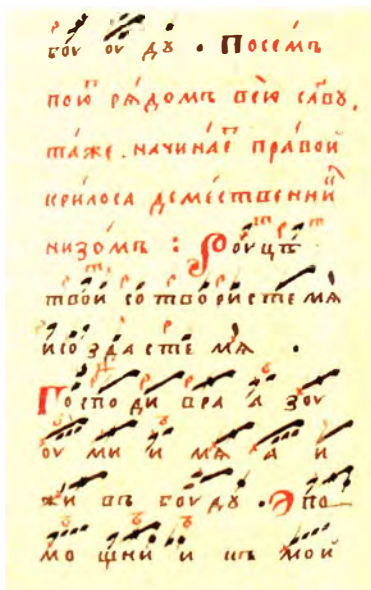 боу оу дꙋ . Посе́мъ
пою̀ рѧ́домъ всю̀ сла́вꙋ,
та́же . начина́е пра́вой
крилоса деме́ственний
низо́мъ : Роуцѣ
твои со твористемѧ
исоздасте мѧ .
Господи вра а зоу
оу ми и мѧ а и
жи въ боудꙋ . Ѿ по
мо щни и къ мой